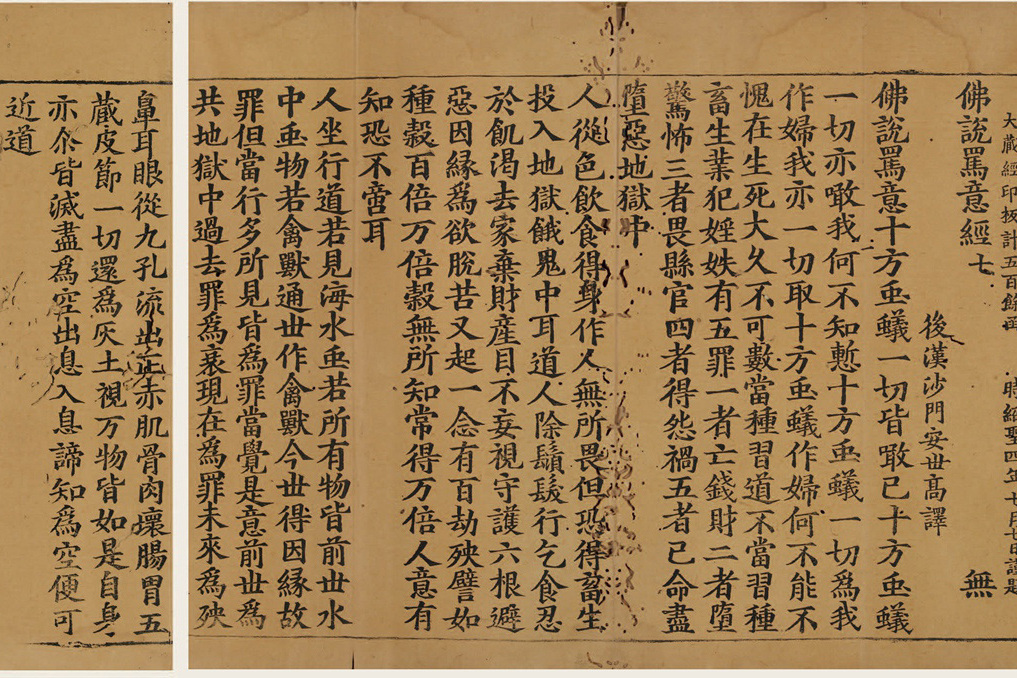 大藏經印板計五百餘函　時紹聖四年七月七日謹題
佛說罵意經七　無
後漢沙門安世髙譯
佛說罵意十方䖝蟻一切皆噉已十方䖝蟻
一切亦噉我何不知慙十方䖝蟻一切爲我
作婦我亦一切取十方䖝蟻作婦何不能不
愧在生死大久不可數當種習道不當習種
畜生業犯婬妷有五罪一者亡錢財二者墮
驚怖三者畏縣官四者得怨禍五者已命盡
墮惡地獄中
人從色飲食得身作人無所畏但恐得畜生
投入地獄餓鬼中耳道人除鬚髮行乞食忍
於飢渴去家棄財産目不妄視守護六根避
惡因縁爲欲脫苦又起一念有百劫殃譬如
種糓百倍万倍糓無所知常得万倍人意有
知恐不啻耳
人坐行道若見海水䖝若所有物皆前世水
中䖝物若禽獸通世作禽獸今世得因縁故
罪但當行多所見皆爲罪當覺是意前世爲
共地獄中過去罪爲衰現在爲罪未來爲殃
鼻耳眼從九孔流出正赤肌骨肉壞腸胃五
藏皮節一切還爲灰土視万物皆如是自身
亦尒皆滅盡爲空出息入息諦知爲空便可
近道